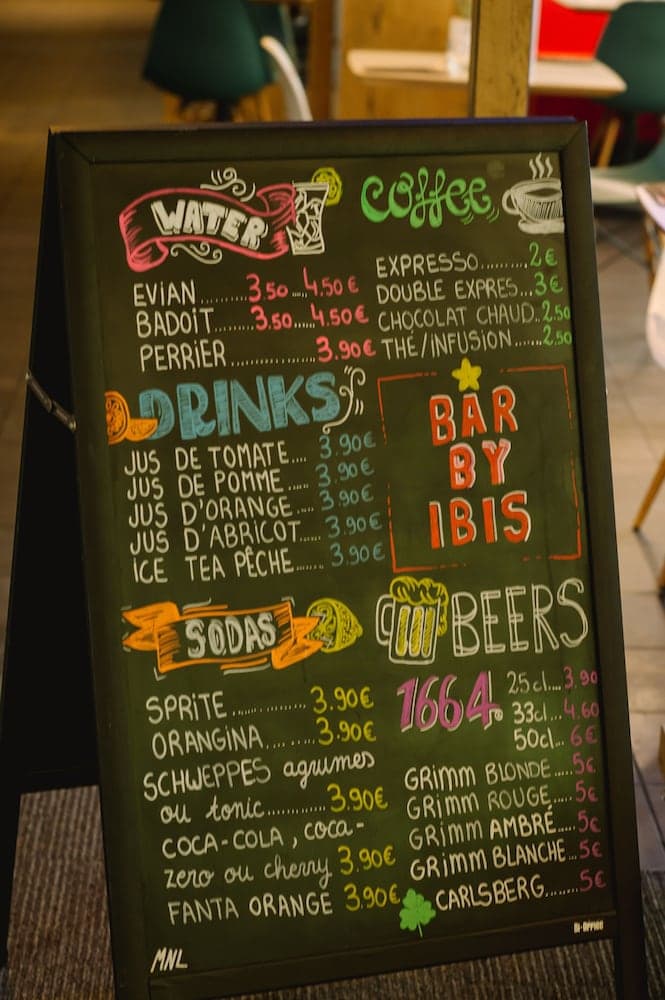 WATER
EVIAN..........3.50....4.50€
BADOIT.......3.50.....4.50€
PERRIER...............3.90€
coffee
EXPRESSO.........2€
DOUBLE EXPRES...3€
CHOCOLAT CHAUD..2.50
THÉ/INFUSION.......2.50
DRINKS
JUS DE TOMATE.... 3.90€
JUS DE POMME.... 3.90€
JUS D'ORANGE.... 3.90€
JUS D'ABRICOT.... 3.90€
ICE TEA PÊCHE...... 3.90€
BAR
BY
IBIS
SODAS
SPRITE.............3.90€
ORANGINA.........3.90€
SCHWEPPES agrumes
ou tonic............3.90€
COCA-COLA, coca-
zero ou cherry 3.90€
FANTA ORANGE 3.90€
BEERS
1664 25cl...3.90
33cl...4.60
50cl...6€
GRIMM BLONDE.....5€
GRIMM ROUGE.....5€
GRIMM AMBRÉ.....5€
GRIMM BLANCHE...5€
CARLSBERG........5€
MNL
Bi-Office